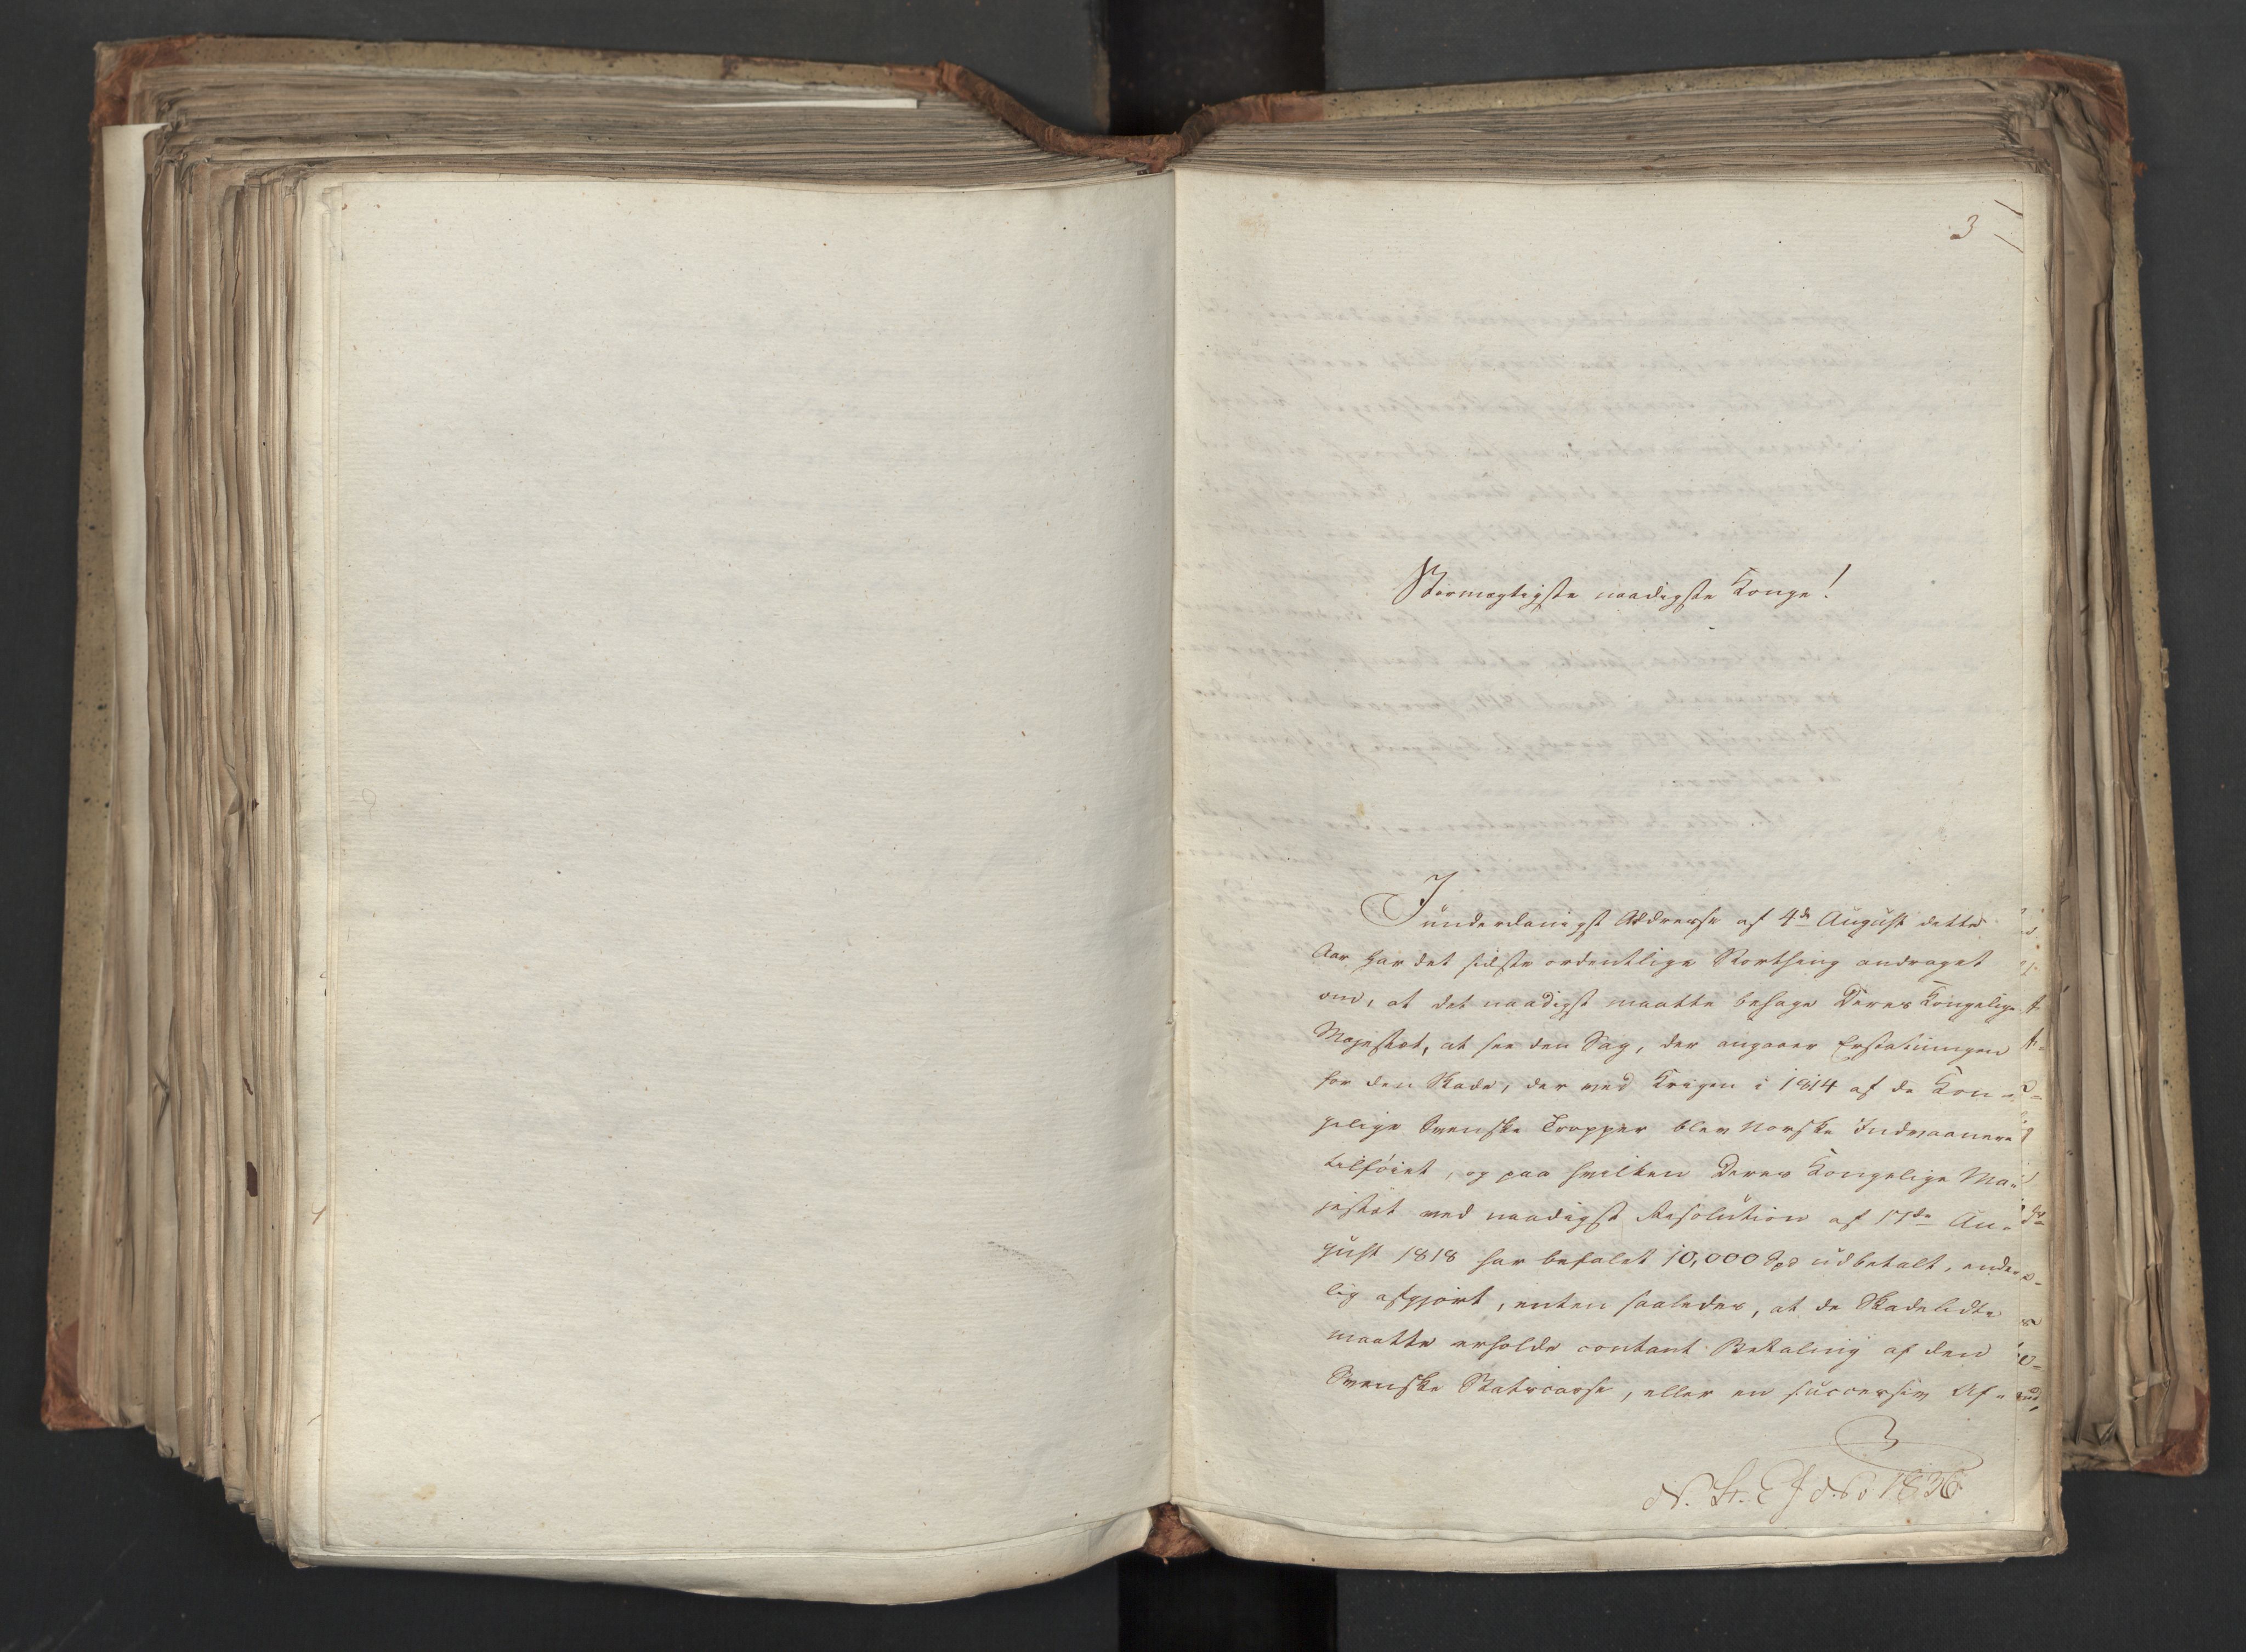 3
Stormægtigste naadigste Konge!
I underdanigst Addresse af 4de August dette
Aar har det sidste ordentlige Storthing andraget
om, at det naadigst maatte behage Deres Kongelige
Majestæt, at see den Sag, der angaaer Erstatningen
for den Skade, der ved Krigen i 1814 af de Kon-
gelige Svenske Tropper blev Norske Indvaanere
tilføiet, og paa hvilken Deres Kongelige Ma-
jestæt ved naadigst Resolution af 17de Au-
gust 1818 har befalet 10,000 Spd udbetalt, ende-
lig afgjort, enten saaledes, at de Skadelidte
maatte erholde contant Betaling af den
Svenske Statscasse, eller en successiv Af-
1836